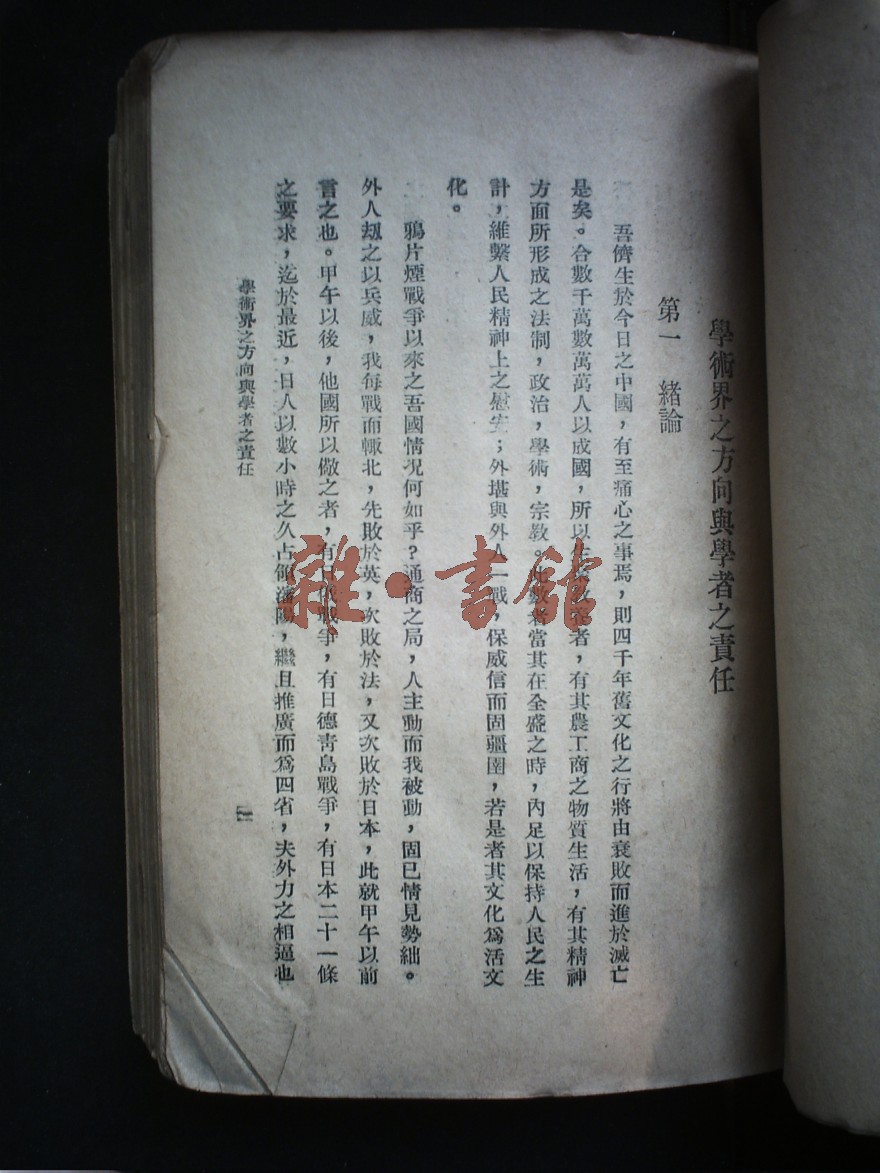 學術界之方向與學者之責任
第一 緒論
吾儕生於今日之中國，有至痛心之事焉，則四千年舊文化之行將由衰敗而進於滅亡
是矣。合數千萬數萬萬人以成國，所以者，有其農工商之物質生活，有其精神
方面所形成之法制，政治，學術，宗教。此數者當其在全盛之時，內足以保持人民之生
計，維繫人民精神上之慰安；外堪與外人一戰，保威信而固疆圉，若是者其文化為活文
化。
鴉片煙戰爭以來之吾國情况何如乎？通商之局，人主動而我被動，固已情見勢絀。
外人刼之以兵威，我每戰而輒北，先敗於英，次敗於法，又次敗於日本，此就甲午以前
言之也。甲午以後，他國所以儆之者，有日戰爭，有日德青島戰爭，有日本二十一條
之要求，迄於最近，日人以數小時之久占領瀋陽，繼且推廣而為四省，夫外力之相逼也
學術界之方向與學者之責任
一
雜·書館